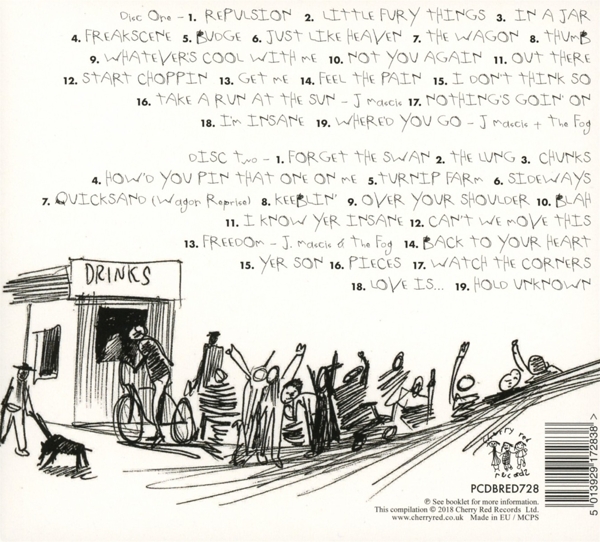 Disc One – 1. REPULSION 2. LITTLE FURY THINGS 3. IN A JAR
4. FREAKSCENE 5. BUDGE 6. JUST LIKE HEAVEN 7. THE WAGON 8. THUMB
9. WHATEVERS COOL WITH ME 10. NOT YOU AGAIN 11. OUT THERE
12. START CHOPPIN 13. GET ME 14. FEEL THE PAIN 15. I DON'T THINK SO
16. TAKE A RUN AT THE SUN – J Mascis 17. NOTHING'S GOIN' ON
18. I'm INSANE 19. WHERE'D YOU GO – J Mascis + The Fog
DISC Two – 1. FORGET THE SWAN 2. THE LUNG 3. CHUNKS
4. HOW'D YOU PIN THAT ONE ON ME 5. TURNIP FARM 6. SIDEWAYS
7. QUICKSAND (Wagon Reprise) 8. KEEBLIN' 9. OVER YOUR SHOULDER 10. BLAH
11. I KNOW YER INSANE 12. CAN'T WE MOVE THIS
13. FREEDOM – J. Mascis & The Fog 14. BACK TO YOUR HEART
15. YER SON 16. PIECES 17. WATCH THE CORNERS
18. LOVE IS... 19. HOLD UNKNOWN
DRINKS
cherry red
records
PCDBRED728
℗ See booklet for more information.
This compilation © 2018 Cherry Red Records Ltd.
www.cherryred.co.uk Made in EU / MCPS
5 013929 172838 >